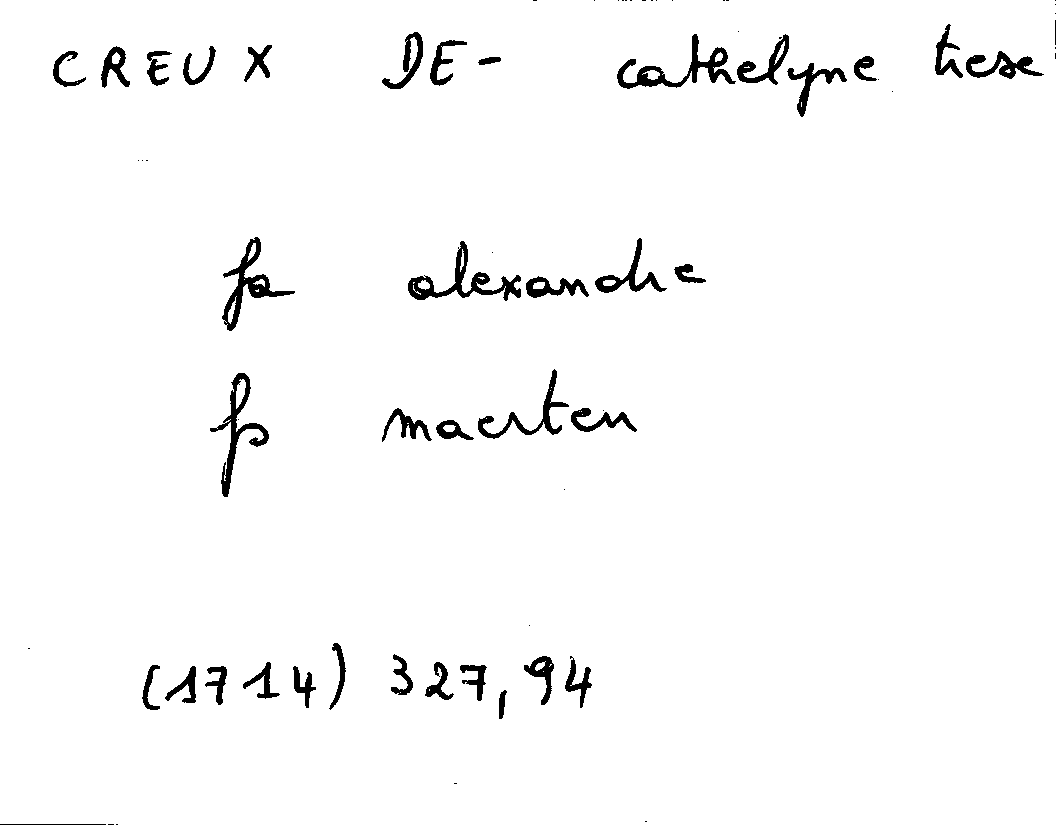 CREUX DE- cathelyne trese
fa alexandre
fs maerten
(1714) 327,94